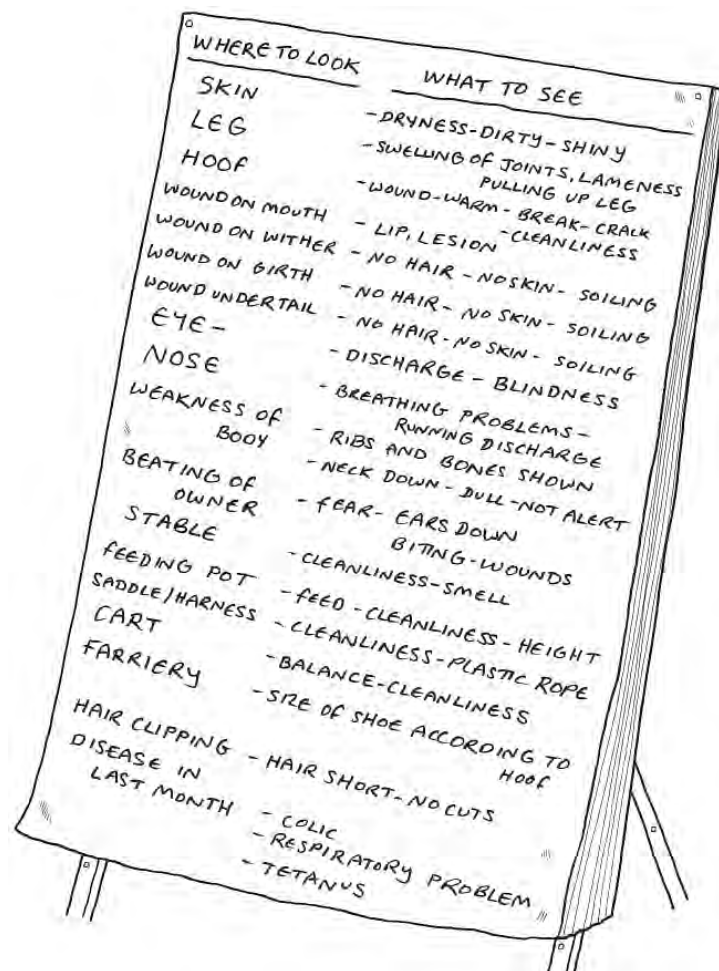 WHERE TO LOOK WHAT TO SEE
SKIN - DRYNESS - DIRTY - SHINY
LEG - SWELLING OF JOINTS, LAMENESS
PULLING UP LEG
HOOF - WOUND - WARM - BREAK - CRACK
- CLEANLINESS
WOUND ON MOUTH - LIP, LESION
WOUND ON WITHER - NO HAIR - NO SKIN - SOILING
WOUND ON GIRTH - NO HAIR - NO SKIN - SOILING
WOUND UNDERTAIL - NO HAIR - NO SKIN - SOILING
EYE - - DISCHARGE - BLINDNESS
NOSE - BREATHING PROBLEMS -
RUNNING DISCHARGE
WEAKNESS OF - RIBS AND BONES SHOWN
BODY - NECK DOWN - DULL - NOT ALERT
BEATING OF - FEAR - EARS DOWN
OWNER BITING - WOUNDS
STABLE - CLEANLINESS - SMELL
FEEDING POT - FEED - CLEANLINESS - HEIGHT
SADDLE/HARNESS - CLEANLINESS - PLASTIC ROPE
CART - BALANCE - CLEANLINESS
FARRIERY - SIZE OF SHOE ACCORDING TO
HOOF
HAIR CLIPPING - HAIR SHORT - NO CUTS
DISEASE IN
LAST MONTH - COLIC
- RESPIRATORY PROBLEM
- TETANUS